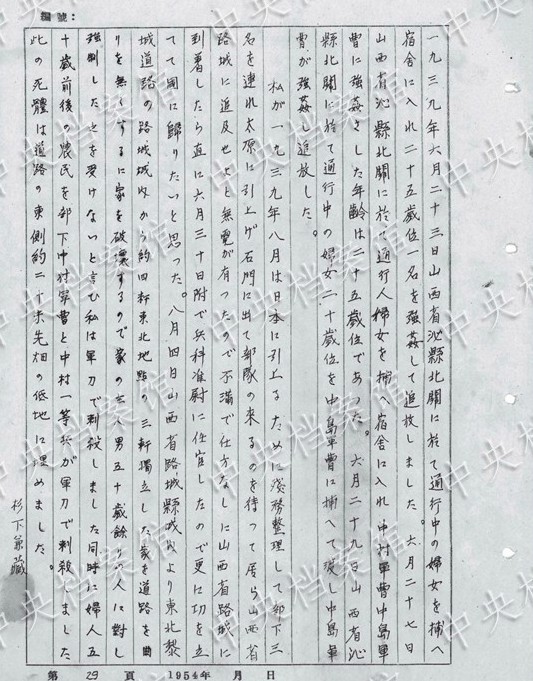 編號：
一九三九年六月二十三日山西省沁縣北關に於て通行中の婦女を捕へ
宿舎に入れ二十五歳位一名を強姦して追放しました。六月二十七日
山西省沁縣北關に於て通行人婦女を捕へ宿舎に入れ中村軍曹中島軍
曹に強姦さした年齢は二十五歳位であった。六月二十九日山西省沁
縣北關に於て通行中の婦女二十歳位を中島軍曹に捕へて渡し中島軍
曹が強姦し追放した。
私が一九三九年八月は日本に引上るために残務整理して部下三
名を連れ太原に引上げ石門に出て部隊の来るのを待って居ら山西省
路城に追及せよと無電が有ったので不満で仕方なしに山西省路城に
到着したら直に六月三十日附で兵科准尉に任官したので更に功を立
てて国に歸りたいと思った。八月四日山西省路城縣城内より東北黎
城道路の路城城内から約四粁東北地點の三軒獨立した家を道路を曲
りを無くするに家を破壊するので家の主人男五十歳餘りの人に對し
強制した之を受けないと言ひ私は軍刀で刺殺しました同時に婦人五
十歳前後の農民を部下中村軍曹と中村一等兵が軍刀で刺殺しました
此の死體は道路の東側約二十米先畑の低地に埋めました。
杉下兼藏
第 29 頁 1954年 月 日
中央档案馆